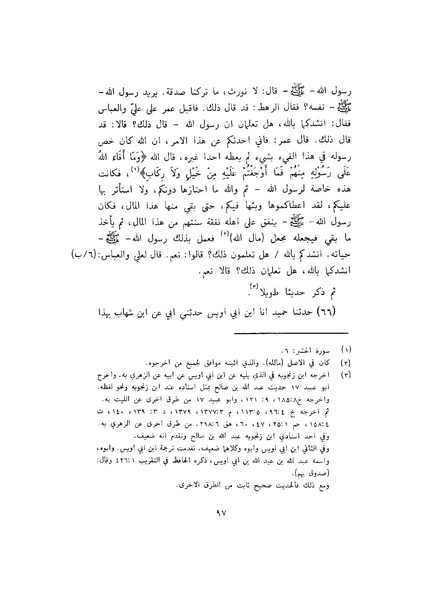 رسول الله - ﷺ - قال: لا نورث، ما تركنا صدقة. يريد رسول الله -
ﷺ - نفسه؟ فقال الرهط: قد قال ذلك. فاقبل عمر على عليّ والعباس
فقال: انشدكما بالله، هل تعلمان ان رسول الله - قال ذلك؟ قالا: قد
قال ذلك. قال عمر: فاني احدثكم عن هذا الامر، ان الله كان خص
رسوله في هذا الفيء بشيء لم يعطه احدا غيره، قال الله ﴿وَمَا أَفَاءَ اللهُ
عَلَى رَسُولِهِ مِنْهُمْ فَمَا أَوْجَفْتُمْ عَلَيْهِ مِنْ خَيْلٍ وَلاَ رِكَابٍ﴾(١)، فكانت
هذه خاصة لرسول الله - ثم والله ما احتازها دونكم، ولا استأثر بها
عليكم، لقد اعطاكموها وبثها فيكم، حتى بقي منها هذا المال، فكان
رسول الله - ﷺ - ينفق على اهله نفقة سنتهم من هذا المال، ثم يأخذ
ما بقي فيجعله مجعل (مال الله)(٢) فعمل بذلك رسول الله - ﷺ -
حياته. انشدكم بالله / هل تعلمون ذلك؟ قالوا: نعم. قال لعلي والعباس: (٦/ب)
انشدكما بالله، هل تعلمان ذلك؟ قالا نعم.
ثم ذكر حديثا طويلا(٣).
(٦٦) حدثنا حميد انا ابن ابي اويس حدثني ابي عن ابن شهاب بهذا
(١) سورة الحشر: ٦.
(٢) كان في الاصل (مالله). والذي اثبته موافق لجميع من اخرجوه.
(٣) اخرجه ابن زنجويه في الذي يليه عن ابن ابي اويس عن ابيه عن الزهري به. واخرج
ابو عبيد ١٧ حديث عبد الله بن صالح بمثل اسناده عند ابن زنجويه ونحو لفظه.
واخرجه خ ٨: ١٨٥، ٩: ١٢١، وابو عبيد ١٧ من طرق اخرى عن الليث به.
ثم اخرجه خ ٤: ٩٦، ٥: ١١٣، م ٣: ١٣٧٧، ١٣٧٩، د ٣: ١٣٩، ١٤٠، ت
٤: ١٥٨، حم ١: ٢٥، ٤٧، ٦٠، هق ٦: ٢٩٨، من طرق اخرى عن الزهري به.
وفي احد اسنادي ابن زنجويه عبد الله بن صالح وتقدم انه ضعيف.
وفي الثاني ابن ابي اويس وابوه وكلاهما ضعيف. تقدمت ترجمة ابن ابي اويس. وابوه،
واسمه عبد الله بن عبد الله بن ابي اويس، ذكره الحافظ في التقريب ١: ٤٢٦ وقال:
(صدوق يهم).
ومع ذلك فالحديث صحيح ثابت من الطرق الاخرى.
٩٧